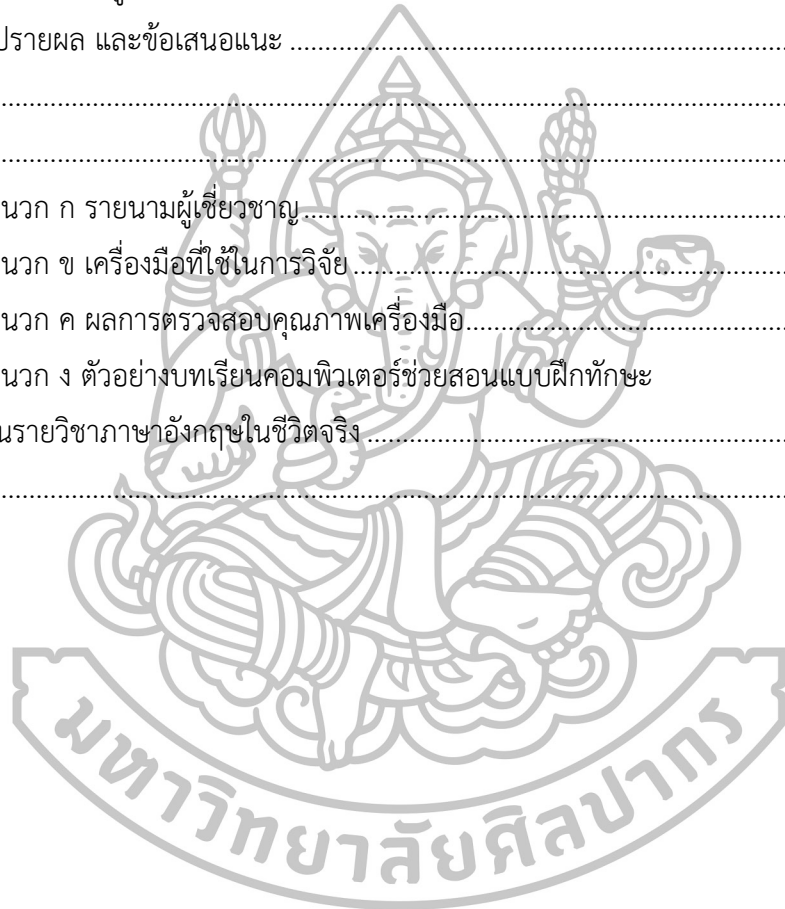 ปรายผล และข้อเสนอแนะ ................................................................
................................................................
................................................................
นวก ก รายนามผู้เชี่ยวชาญ ................................................................
นวก ข เครื่องมือที่ใช้ในการวิจัย ................................................................
นวก ค ผลการตรวจสอบคุณภาพเครื่องมือ ................................................................
นวก ง ตัวอย่างบทเรียนคอมพิวเตอร์ช่วยสอนแบบฝึกทักษะ
นรายวิชาภาษาอังกฤษในชีวิตจริง ................................................................
................................................................
มหาวิทยาลัยศิลปากร